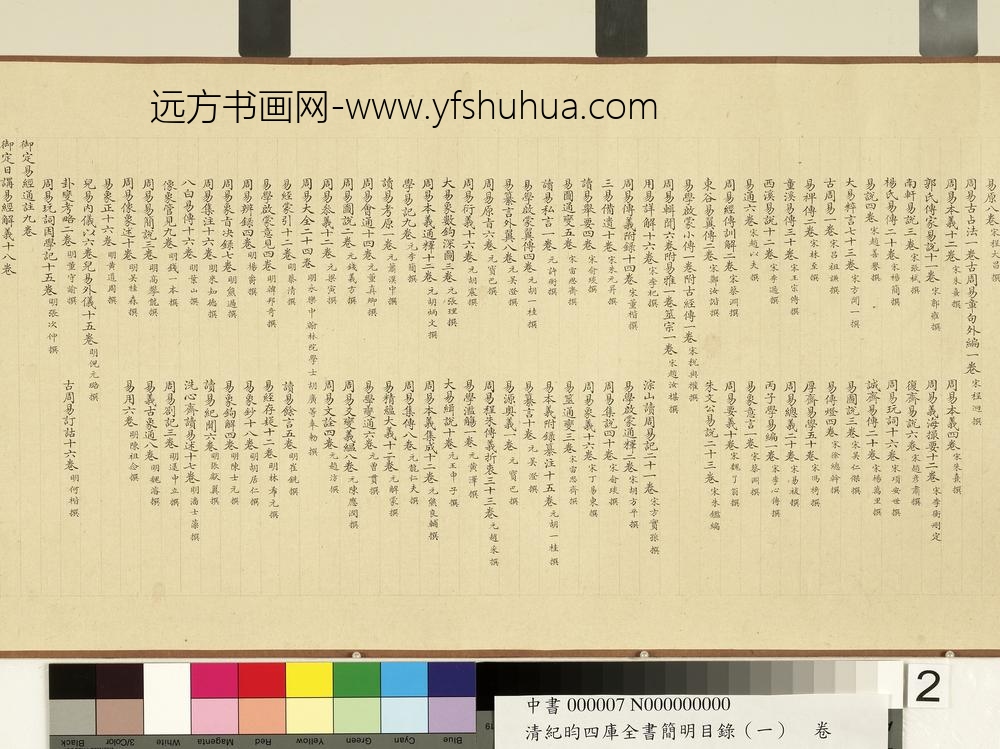 远方书画网-www.yfshuhua.com
易原八卷宋程大昌撰
周易古占法一卷古周易章句外編一卷宋程迥撰
周易本義十二卷宋朱熹撰
周易本義四卷宋朱熹撰
郭氏傳家易說十一卷宋郭雍撰
周易義海撮要十二卷宋李衡刪定
南軒易說三卷宋張栻撰
復齋易說六卷宋趙彥肅撰
楊氏易傳二十卷宋楊簡撰
周易玩詞十六卷宋項安世撰
易說四卷宋趙善譽撰
誠齋易傳二十卷宋楊萬里撰
大易粹言七十三卷宋方聞一撰
易圖說三卷宋吳仁傑撰
古周易一卷宋呂祖謙撰
易傳燈四卷宋徐總幹撰
易裨傳二卷宋林至撰
厚齋易學五十卷宋馮椅撰
童溪易傳三十卷宋王宗傳撰
周易總義二十卷宋易祓撰
西溪易說十二卷宋李過撰
丙子學易編一卷宋李心傳撰
易通六卷宋趙以夫撰
易象意言一卷宋蔡淵撰
周易經傳訓解二卷宋蔡淵撰
周易要義十卷宋魏了翁撰
東谷易翼傳二卷宋鄭汝諧撰
朱文公易說二十三卷宋朱鑑編
易學啟蒙小傳一卷附古經傳一卷宋稅與權撰
周易輯聞六卷附易雅一卷筮宗一卷宋趙汝楳撰
用易詳解十六卷宋李杞撰
淙山讀周易記二十一卷宋方寔孫撰
周易傳義附錄十四卷宋董楷撰
易學啟蒙通釋二卷宋胡方平撰
三易備遺十卷宋朱元昇撰
周易集說四十卷宋俞琰撰
讀易舉要四卷宋俞琰撰
周易象義十六卷宋丁易東撰
易圖通變五卷宋雷思齊撰
易筮通變三卷宋雷思齊撰
讀易私言一卷元許衡撰
易本義附錄纂注十五卷元胡一桂撰
易學啟蒙翼傳四卷元胡一桂撰
易纂言十卷元吳澄撰
易纂言外翼八卷元吳澄撰
易源奧義一卷元寶巴撰
周易原旨六卷元寶巴撰
周易程朱傳義折衷三十三卷元趙采撰
周易衍義十六卷元胡震撰
易學濫觴一卷元黃澤撰
大易象數鉤深圖三卷元張理撰
大易緝說十卷元王申子撰
周易本義通釋十二卷元胡炳文撰
周易本義集成十二卷元熊良輔撰
學易記九卷元李簡撰
周易集傳八卷元龍仁夫撰
讀易考原一卷元蕭漢中撰
易精蘊大義十二卷元解蒙撰
周易會通十四卷元董真卿撰
易學變通六卷元曾貫撰
周易圖說二卷元錢義方撰
周易爻變義蘊八卷元陳應潤撰
周易參義十二卷元梁寅撰
周易文詮四卷元趙汸撰
周易大全二十四卷明永樂中翰林院學士胡廣等奉勅撰
易經蒙引十二卷明蔡清撰
讀易餘言五卷明崔銑撰
易學啟蒙意見四卷明韓邦奇撰
易經存疑十二卷明林希元撰
周易辨錄四卷明楊爵撰
易象鈔十八卷明胡居仁撰
周易象旨決錄七卷明熊過撰
易象鉤解四卷明陳士元撰
周易集注十六卷明來知德撰
讀易紀聞六卷明張獻翼撰
八白易傳十六卷明葉山撰
洗心齋讀易述十七卷明潘士藻撰
像象管見九卷明錢一本撰
周易劄記三卷明逯中立撰
周易易簡說三卷明高攀龍撰
易義古象通八卷明魏濬撰
周易像象述十卷明吳桂森撰
易用六卷明陳祖念撰
易象正十六卷明黃道周撰
兒易內儀以六卷兒易外儀十五卷明倪元璐撰
卦變考略二卷明董守諭撰
古周易訂詁十六卷明何楷撰
周易玩詞困學記十五卷明張次仲撰
御定易經通註九卷
御定日講易經解義十八卷
2
中書 000007 N000000000
清紀昀四庫全書簡明目錄(一) 卷
Black
3/Color
White
Magenta
Red
Yellow
Green
Cyan
Blue
19